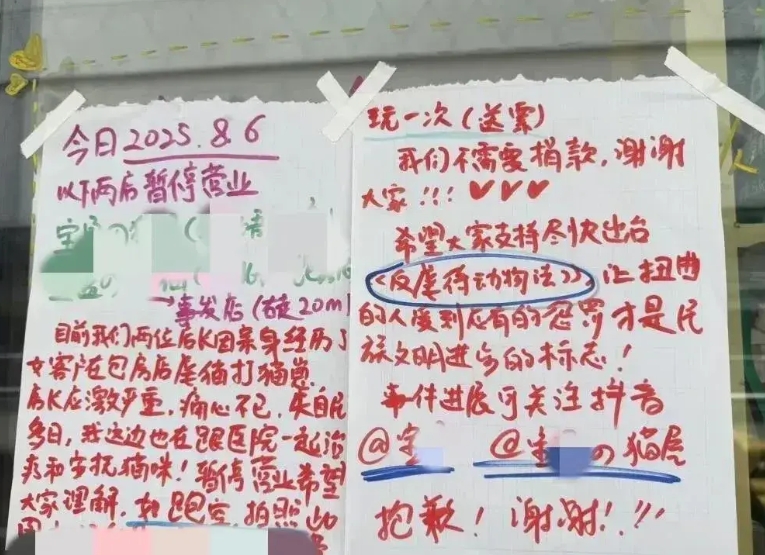 今日2025.8.6
以下两店暂停营业
宝
事发店(右走20m)
目前我们两位店长因亲身经历了
女客户在包房后虐猫打猫崽
店长应激严重,痛心不已,失自民
多日,我这边也在跟医院一起治
疗和安抚猫咪!暂停营业希望
大家理解,如跑空,拍照
玩一次(送票)
我们不需要捐款,谢谢
大家!!!
希望大家支持尽快出台
《反虐待动物法》,让扭曲
的人受到应有的惩罚才是民
族文明进步的标志!
事件进展可关注抖音
@宝 @生 の猫屋
抱歉!谢谢!!!